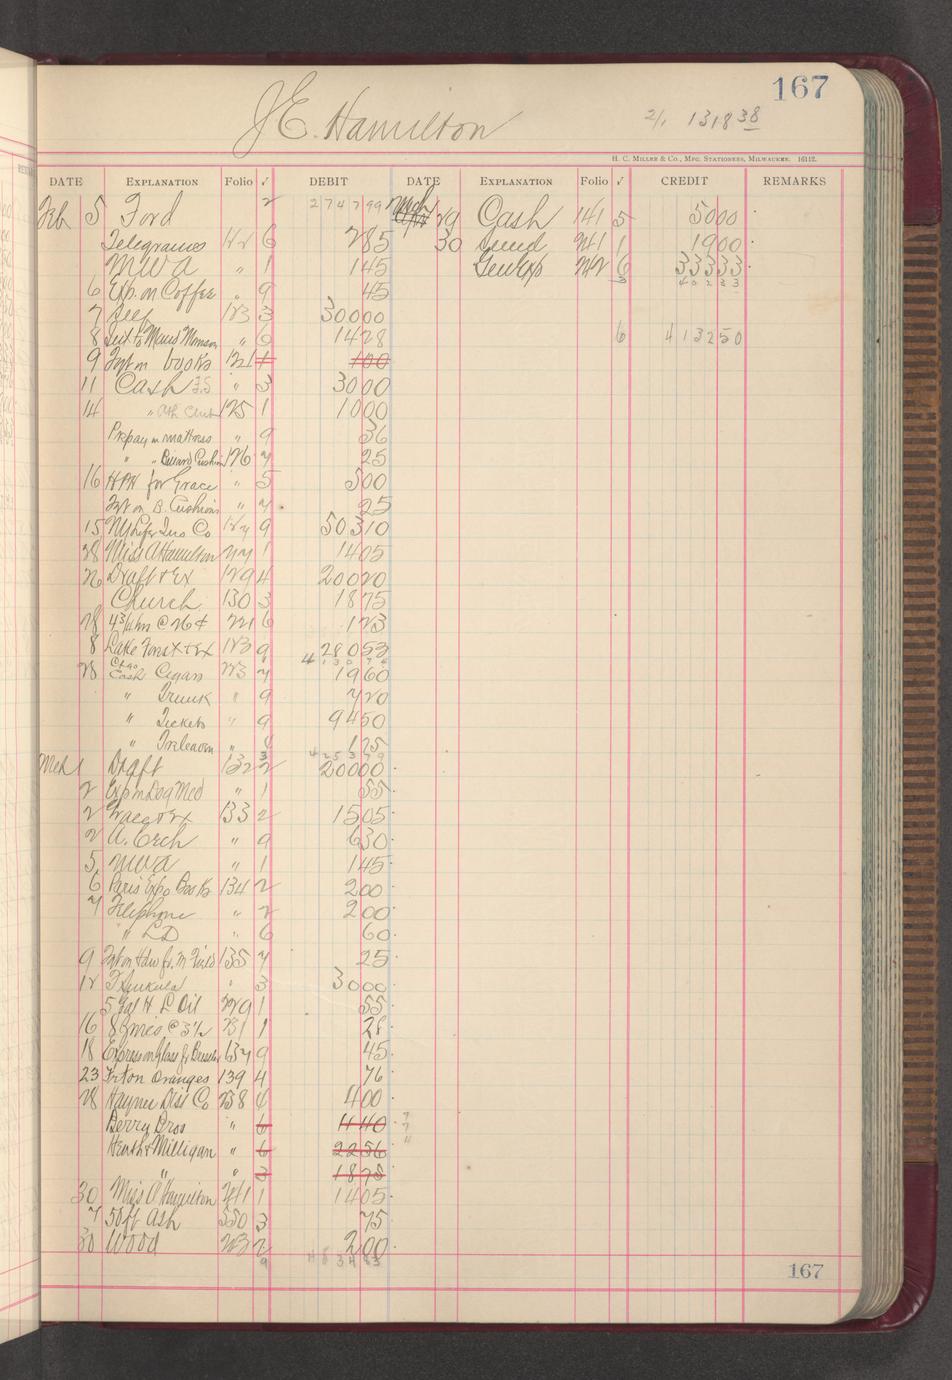 167
J. E. Hamilton
2/1 1318 38
H. C. Miller & Co., Mfg. Stationers, Milwaukee. 16112.
DATE EXPLANATION Folio √ DEBIT DATE EXPLANATION Folio √ CREDIT REMARKS
Feb 5 Ford 2 2747 99 Mch 29 Cash 141 5 5000
Telegrams 6 285 30 241 1 1900
MWA " 1 145 GenExp 6 33333
6 Exp. on Coffee " 9 45
7 Self 123 3 30000
8 " 6 1428 6 4132 50
9 Frt on books 1 100
11 Cash " 3 3000
14 " 125 1 1000
Prepay on mattress " 9 36
" " Billiard Cushion 126 7 25
16 for Grace " 5 500
Frt on B. Cushions " 7 25
15 NY Life Ins Co 127 9 50310
28 Miss A Hamilton 1 1405
26 Draft & Ex 129 4 20020
Church 130 3 1875
28 4 3/4 hrs @ 26¢ 221 6 123
8 Lake Forest & Ex 123 9 28053
28 Chgo Cash Cigars 223 7 1960
" Trunk " 9 720
" Tickets " 9 9450
" " 125
Mch 1 Draft 132 2 20000
2 Exp on Dog Med " 1 55
2 Grace & Ex 133 2 1505
2 A. Orch " 9 630
5 MWA " 1 145
6 Paris Expo Books 134 2 200
7 Telephone " 2 200
" LD " 6 60
9 135 7 25
12 " 3 3000
5 Gal H L Oil 229 1 55
16 231 1 28
18 Express on Glass fr 137 9 45
23 Frt on Oranges 139 4 76
28 Hayner Dist Co 238 4 400
Berry Bros " 6 440
Heath & Milligan " 6 2256
" " 3 1878
30 Miss A Hamilton 241 1 1405
7 50 ft Ash 3 75
30 Wood 2 200
167